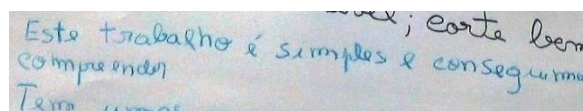 ; corte bem
Este trabalho é simples e conseguimo
compreender
Tem umas